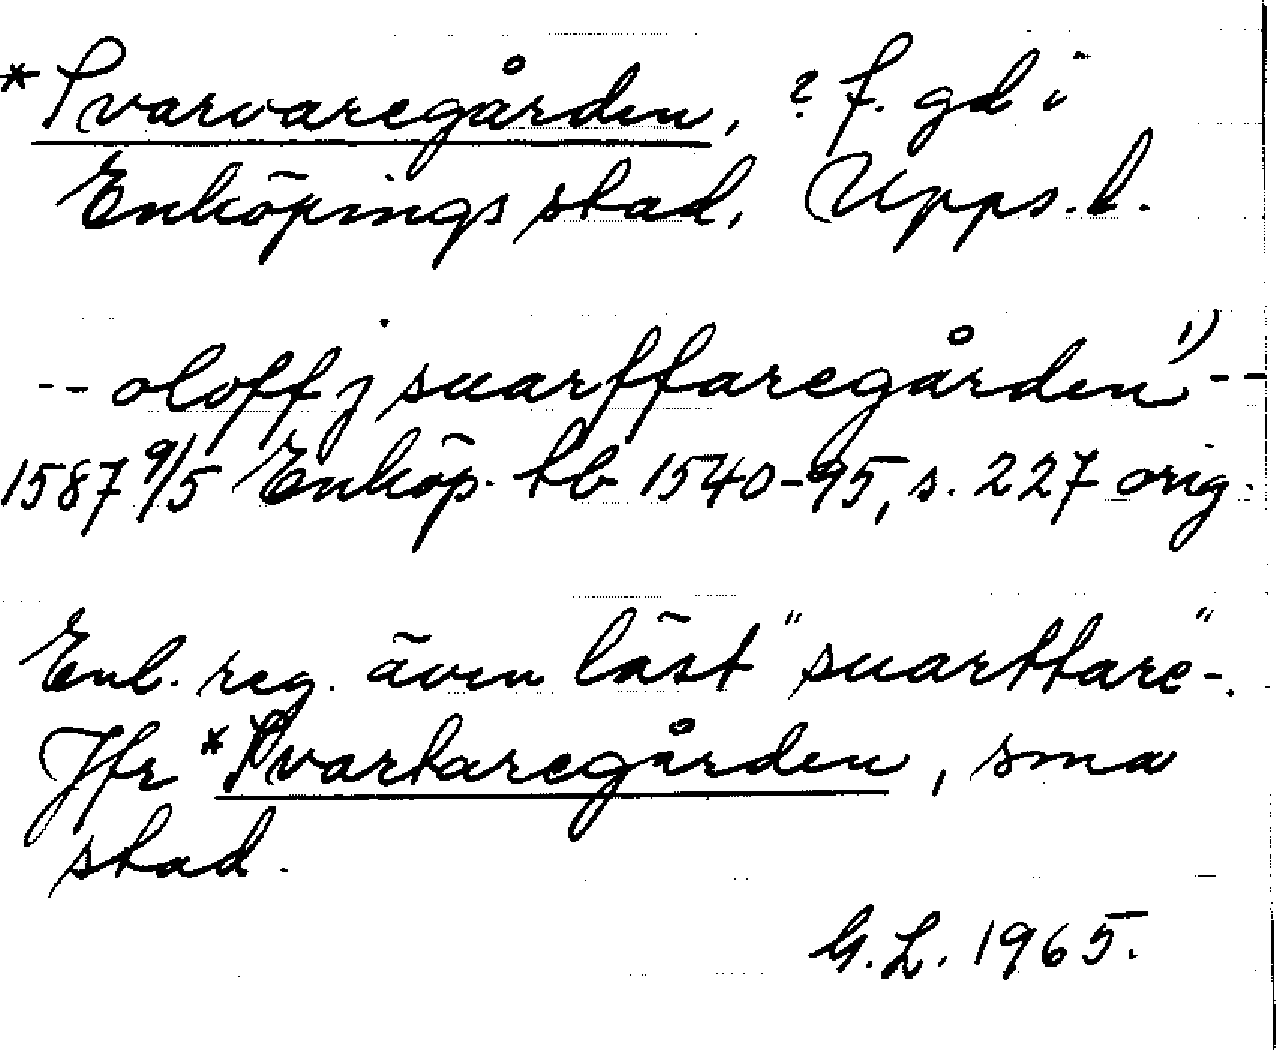 *Svarvaregården, ? f. gd i
Enköpings stad, Upps. l.
-- oloff j suarffaregården 1) --
1587 9/5 Enköp. tb 1540-95, s. 227 orig.
Enl. reg. även läst "suarttare"-.
Jfr *Svartaregården, sma
stad.
G. L. 1965.